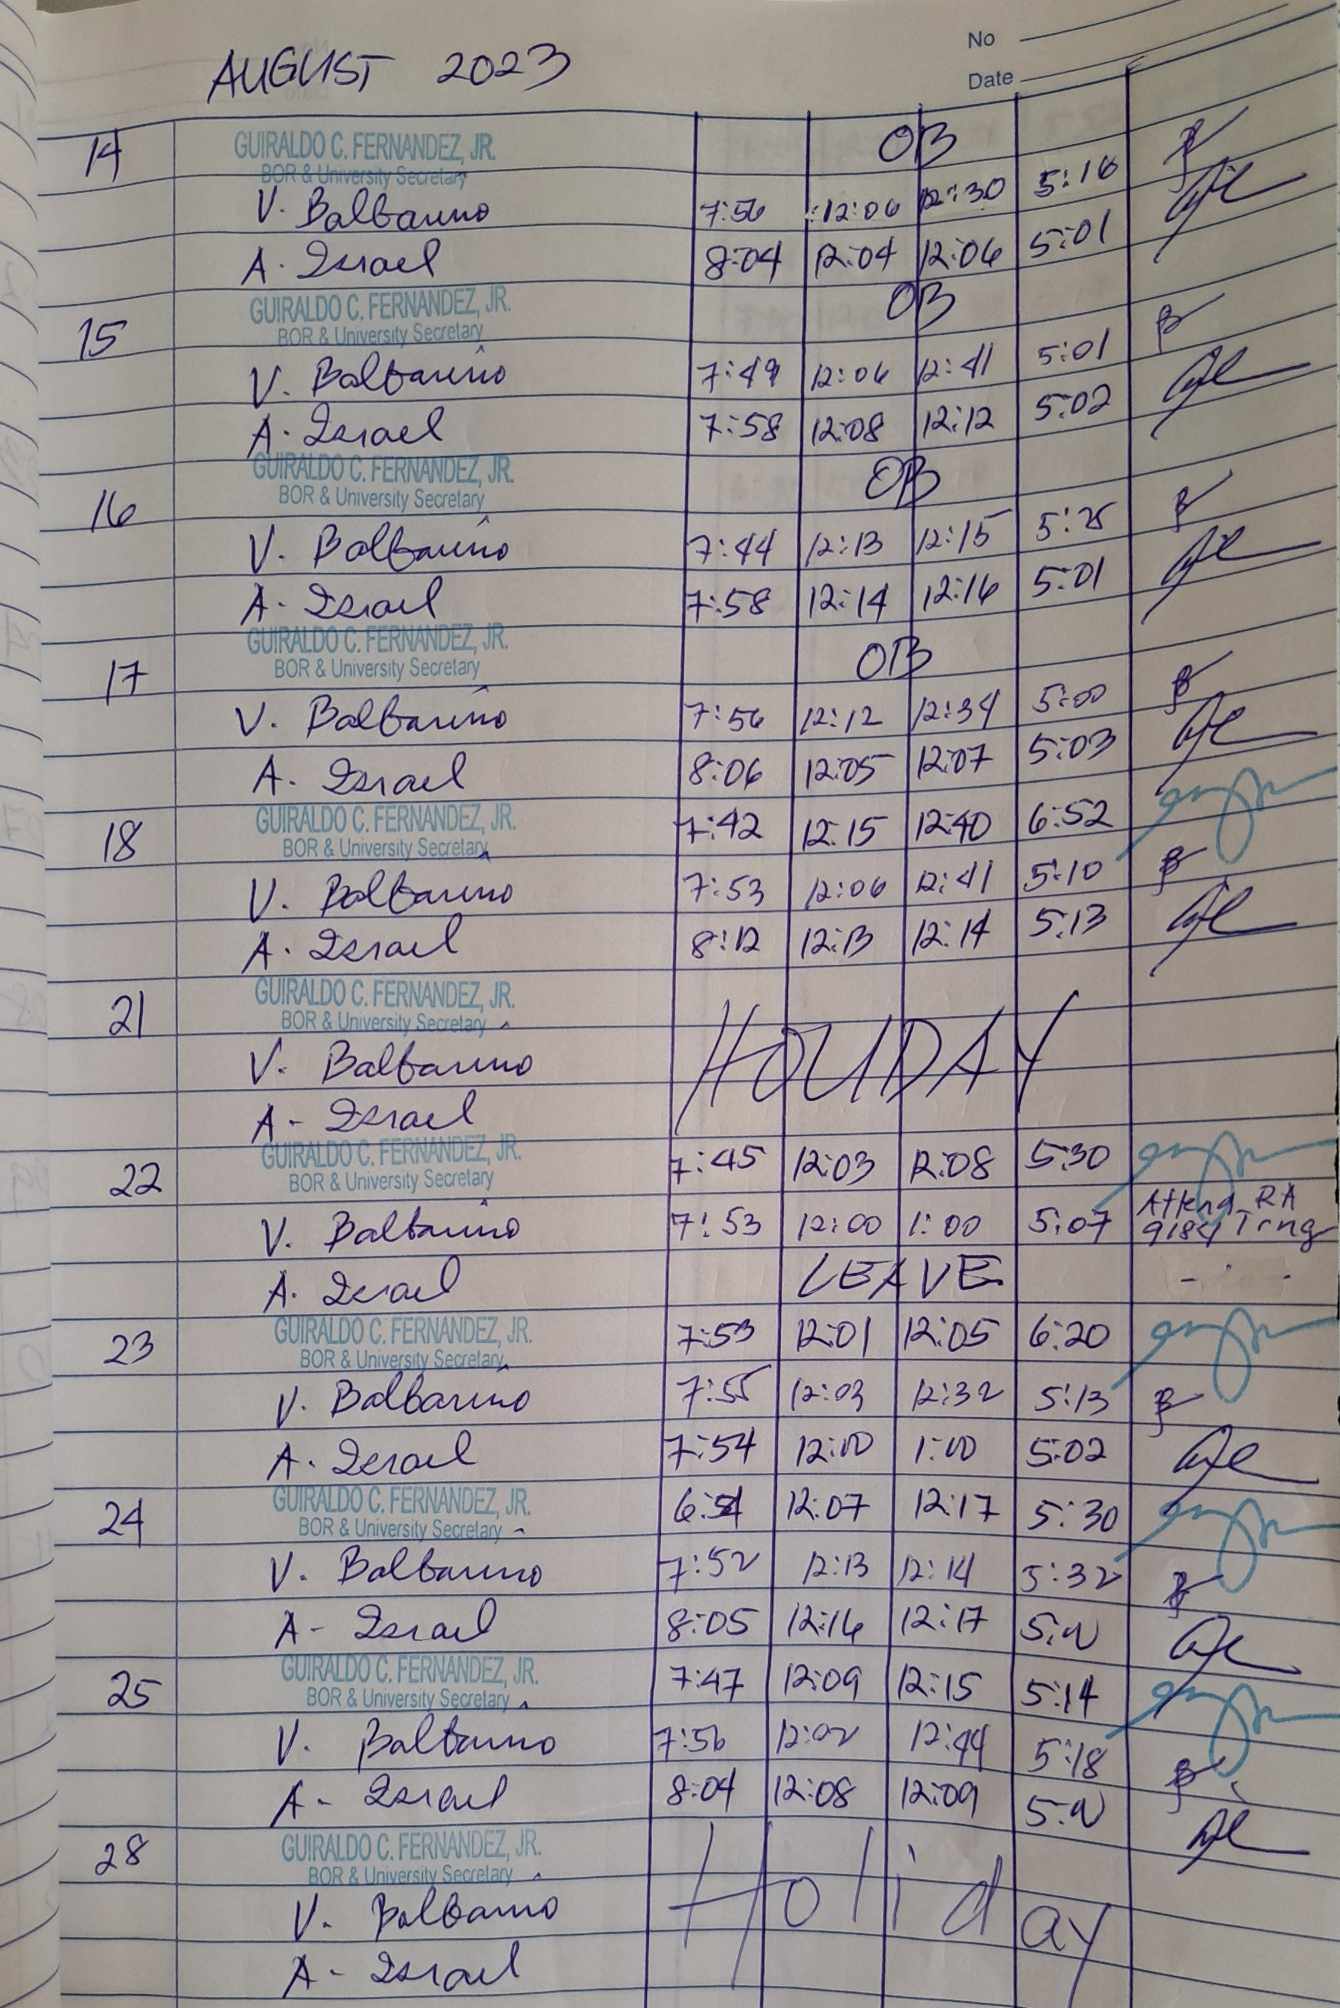 No
Date
AUGUST 2023
14 GUIRALDO C. FERNANDEZ, JR. OB
BOR & University Secretary
V. Balbarino 7:56 12:06 12:30 5:16
A. Israel 8:04 12:04 12:06 5:01
15 GUIRALDO C. FERNANDEZ, JR. OB
BOR & University Secretary
V. Balbarino 7:49 12:06 12:41 5:01
A. Israel 7:58 12:08 12:12 5:02
16 GUIRALDO C. FERNANDEZ, JR. OB
BOR & University Secretary
V. Balbarino 7:44 12:13 12:15 5:25
A. Israel 7:58 12:14 12:16 5:01
17 GUIRALDO C. FERNANDEZ, JR. OB
BOR & University Secretary
V. Balbarino 7:56 12:12 12:34 5:00
A. Israel 8:06 12:05 12:07 5:03
18 GUIRALDO C. FERNANDEZ, JR. 7:42 12:15 12:40 6:52
BOR & University Secretary
V. Balbarino 7:53 12:06 12:41 5:10
A. Israel 8:12 12:13 12:14 5:13
21 GUIRALDO C. FERNANDEZ, JR.
BOR & University Secretary
V. Balbarino HOLIDAY
A - Israel
22 GUIRALDO C. FERNANDEZ, JR. 7:45 12:03 12:08 5:30
BOR & University Secretary
V. Balbarino 7:53 12:00 1:00 5:07 Attend RA
9184 Trng
A. Israel LEAVE
23 GUIRALDO C. FERNANDEZ, JR. 7:53 12:01 12:05 6:20
BOR & University Secretary
V. Balbarino 7:55 12:03 12:32 5:13
A. Israel 7:54 12:00 1:00 5:02
24 GUIRALDO C. FERNANDEZ, JR. 6:54 12:07 12:17 5:30
BOR & University Secretary
V. Balbarino 7:52 12:13 12:14 5:32
A - Israel 8:05 12:16 12:17 5:00
25 GUIRALDO C. FERNANDEZ, JR. 7:47 12:09 12:15 5:14
BOR & University Secretary
V. Balbarino 7:56 12:02 12:44 5:18
A - Israel 8:04 12:08 12:09 5:00
28 GUIRALDO C. FERNANDEZ, JR.
BOR & University Secretary
V. Balbarino Holiday
A - Israel